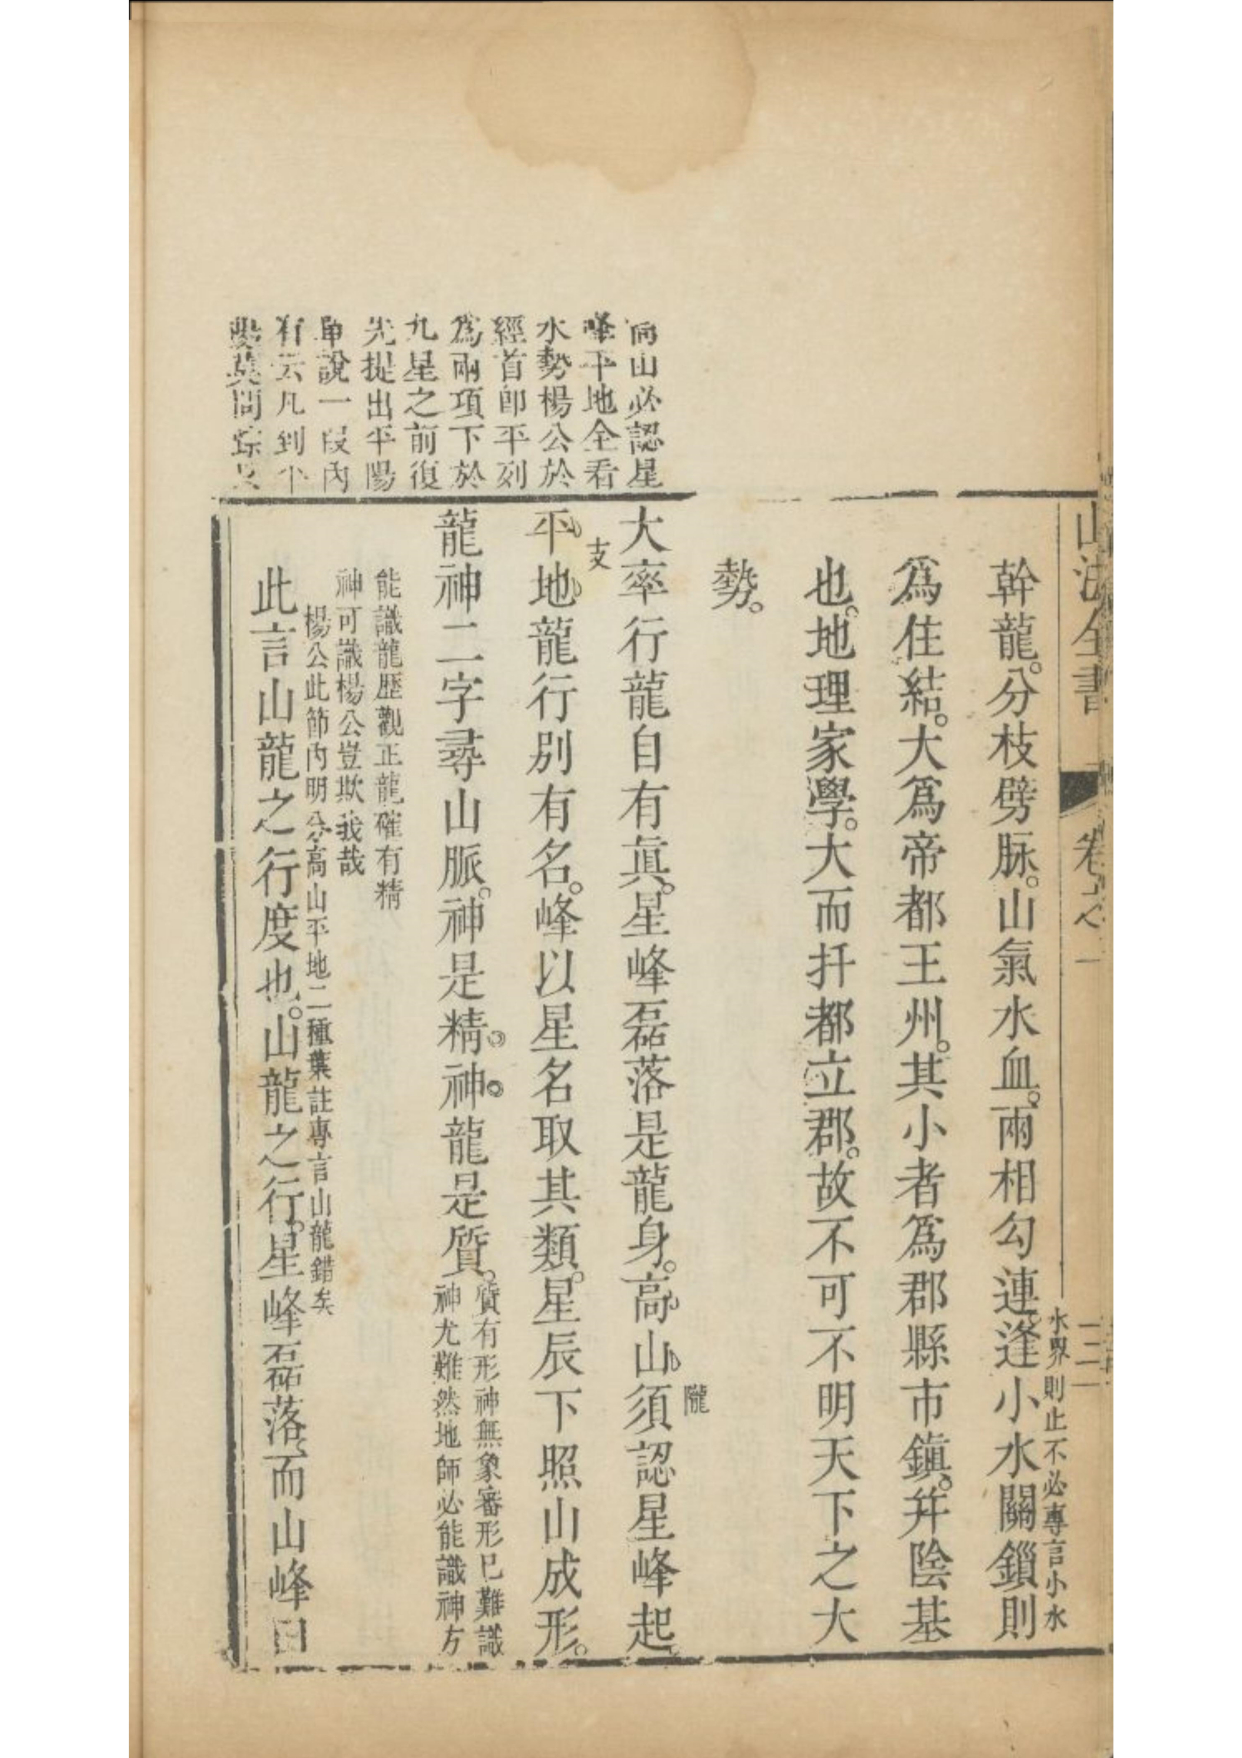 山法全書
卷之一
幹龍。分枝劈脉。山氣水血。兩相勾連。逢小水關鎖則
水界則止不必專言小水
爲住結。大爲帝都王州。其小者爲郡縣市鎭。幷陰基
也。地理家學。大而扞都立郡。故不可不明天下之大
勢。
高山必認星
峰平地全看
水勢楊公於
經首卽平列
爲兩項下於
九星之前復
先提出平陽
單說一段內
有云凡到平
陽莫問踪
大率行龍自有眞。星峰磊落是龍身。高山須認星峰起。
隴
支
平地龍行別有名。峰以星名取其類。星辰下照山成形。
龍神二字尋山脈。神是精神。龍是質。
質有形神無象審形已難識
神尤難然地師必能識神方
能識龍歷觀正龍確有精
神可識楊公豈欺我哉
楊公此節內明分高山平地二種葉註專言山龍錯矣
此言山龍之行度也。山龍之行。星峰磊落。而山峰曰